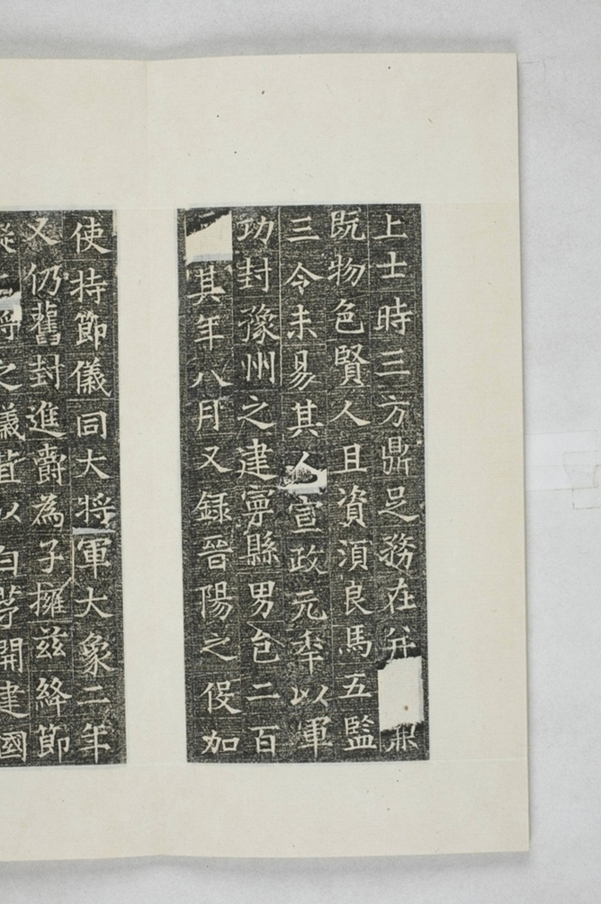 上士時三方鼎足務在并
既物色賢人且資須良馬五監
三令未易其人宣政元年以軍
功封豫州之建寧縣男邑二百
其年八月又録晉陽之役加
使持節儀同大將軍大象二年
又仍舊封進爵為子擁茲絳節
將之儀苴以白茅開建國